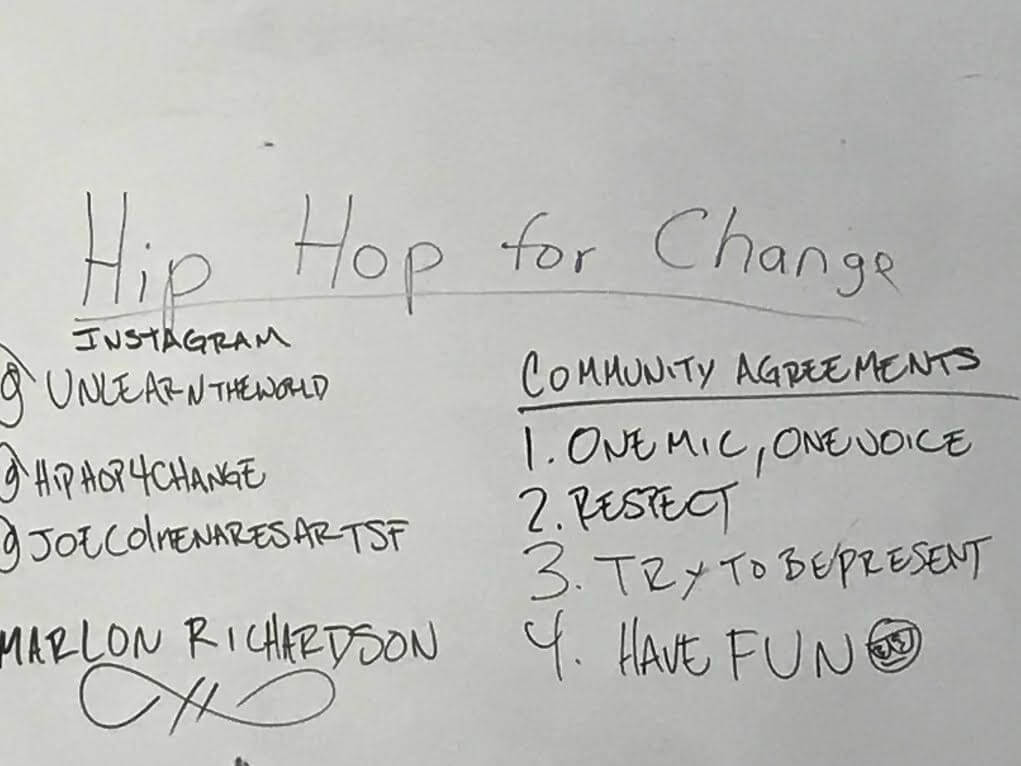 Hip Hop for Change
INSTAGRAM
@UNLEARNTHEWORLD
@HIPHOP4CHANGE
@JOECOLMENARESARTSF
MARLON RICHARDSON
COMMUNITY AGREEMENTS
1. ONE MIC, ONE VOICE
2. RESPECT
3. TRY TO BE PRESENT
4. HAVE FUN